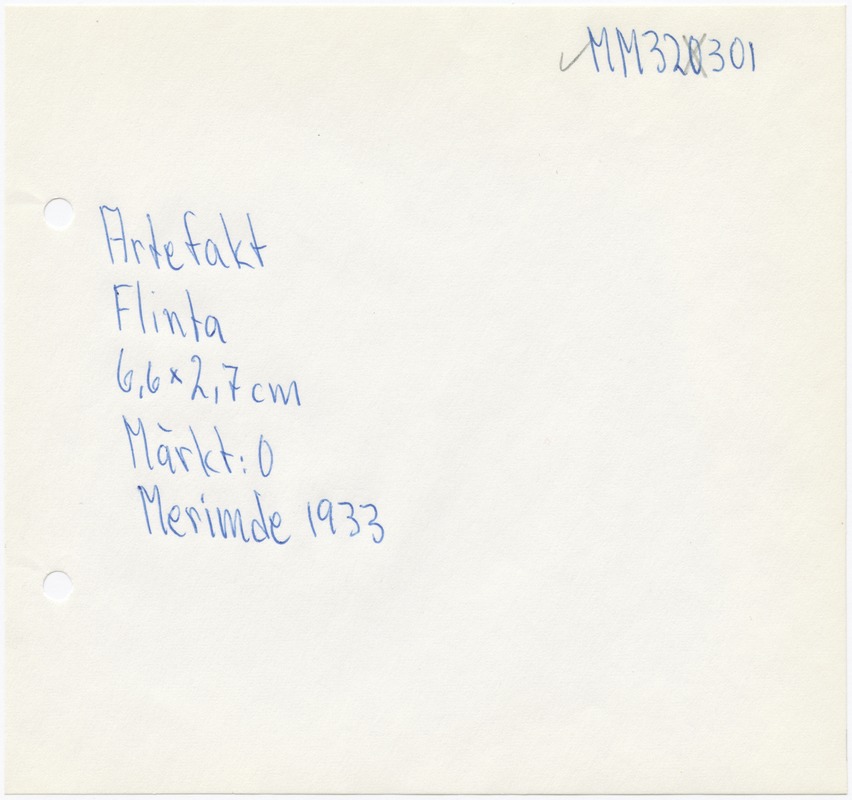 MM32301
Artefakt
Flinta
6,6 x 2,7 cm
Märkt: 0
Merimde 1933